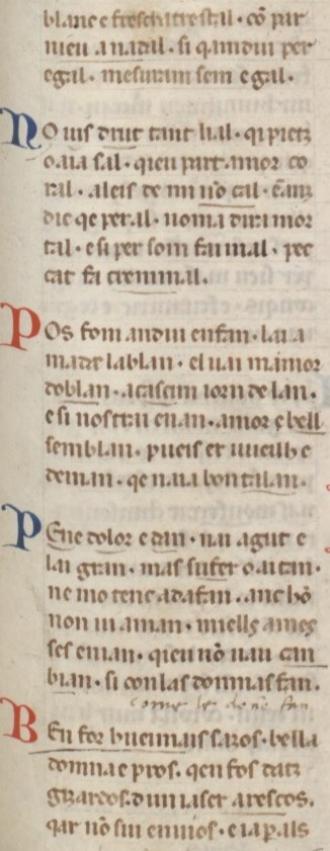 blanc e fresch itrestal · cō par
nieu a nadal · si qamdui per
egal · mesuram sem egal ·
NO uis drut tant lial · qi pietz
o aia sal · qieu port amor co
ral · aleis de mi nō cal · ēanz
dic qe per al · noma dira mor
tal · e si per som fai mal · pec
cat fa criminal ·
POs fom andui enfan · lai a
mada e la blan · el uai mamor
doblan · a cascun iorn de lan ·
e si nosfai enan · amor e bell
semblan · pueis er uieilh e
deman · qe naia bon talan ·
PEne dolor e dan · nai agut e
lai gran · mas sufert o ai tan ·
ne mo tenc ad afan · anc hō
non ui aman · miells ames
ses enian · qieu nō uau can
bian · si con las donnas fan ·
come le done fan
BEn for hueimais sazos · bella
domna e pros · qen fos datz
gizardos · dun iaser a rescos ·
qar nō sui enuios · e ia p̄ als